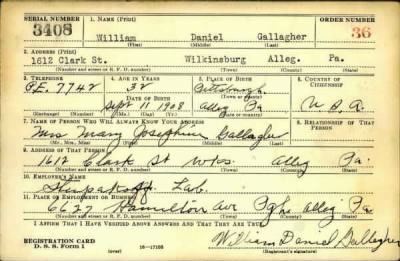 SERIAL NUMBER 1. NAME (Print) ORDER NUMBER
3408 William Daniel Gallagher 36
(First) (Middle) (Last)
2. ADDRESS (Print)
1612 Clark St. Wilkinsburg Alleg. Pa.
(Number and street or R. F. D. number) (Town) (County) (State)
3. TELEPHONE 4. AGE IN YEARS 5. PLACE OF BIRTH 6. COUNTRY OF CITIZENSHIP
PE. 7742 32 Pittsburgh
DATE OF BIRTH (Town or county)
Sept 11 1908 Alleg Pa U.S.A.
(Exchange) (Number) (Mo.) (Day) (Yr.) (State or country)
7. NAME OF PERSON WHO WILL ALWAYS KNOW YOUR ADDRESS 8. RELATIONSHIP OF THAT PERSON
Mrs Mary Josephine Gallagher
(Mr., Mrs., Miss) (First) (Middle) (Last)
9. ADDRESS OF THAT PERSON
1612 Clark St Wks. Alleg Pa.
(Number and street or R. F. D. number) (Town) (County) (State)
10. EMPLOYER'S NAME
Lab.
11. PLACE OF EMPLOYMENT OR BUSINESS
6627 Hamilton Ave Pgh. Alleg Pa.
(Number and street or R. F. D. number) (Town) (County) (State)
I AFFIRM THAT I HAVE VERIFIED ABOVE ANSWERS AND THAT THEY ARE TRUE.
REGISTRATION CARD
D. S. S. Form 1 (over) 16—17105 William Daniel Gallagher
(Registrant's signature)